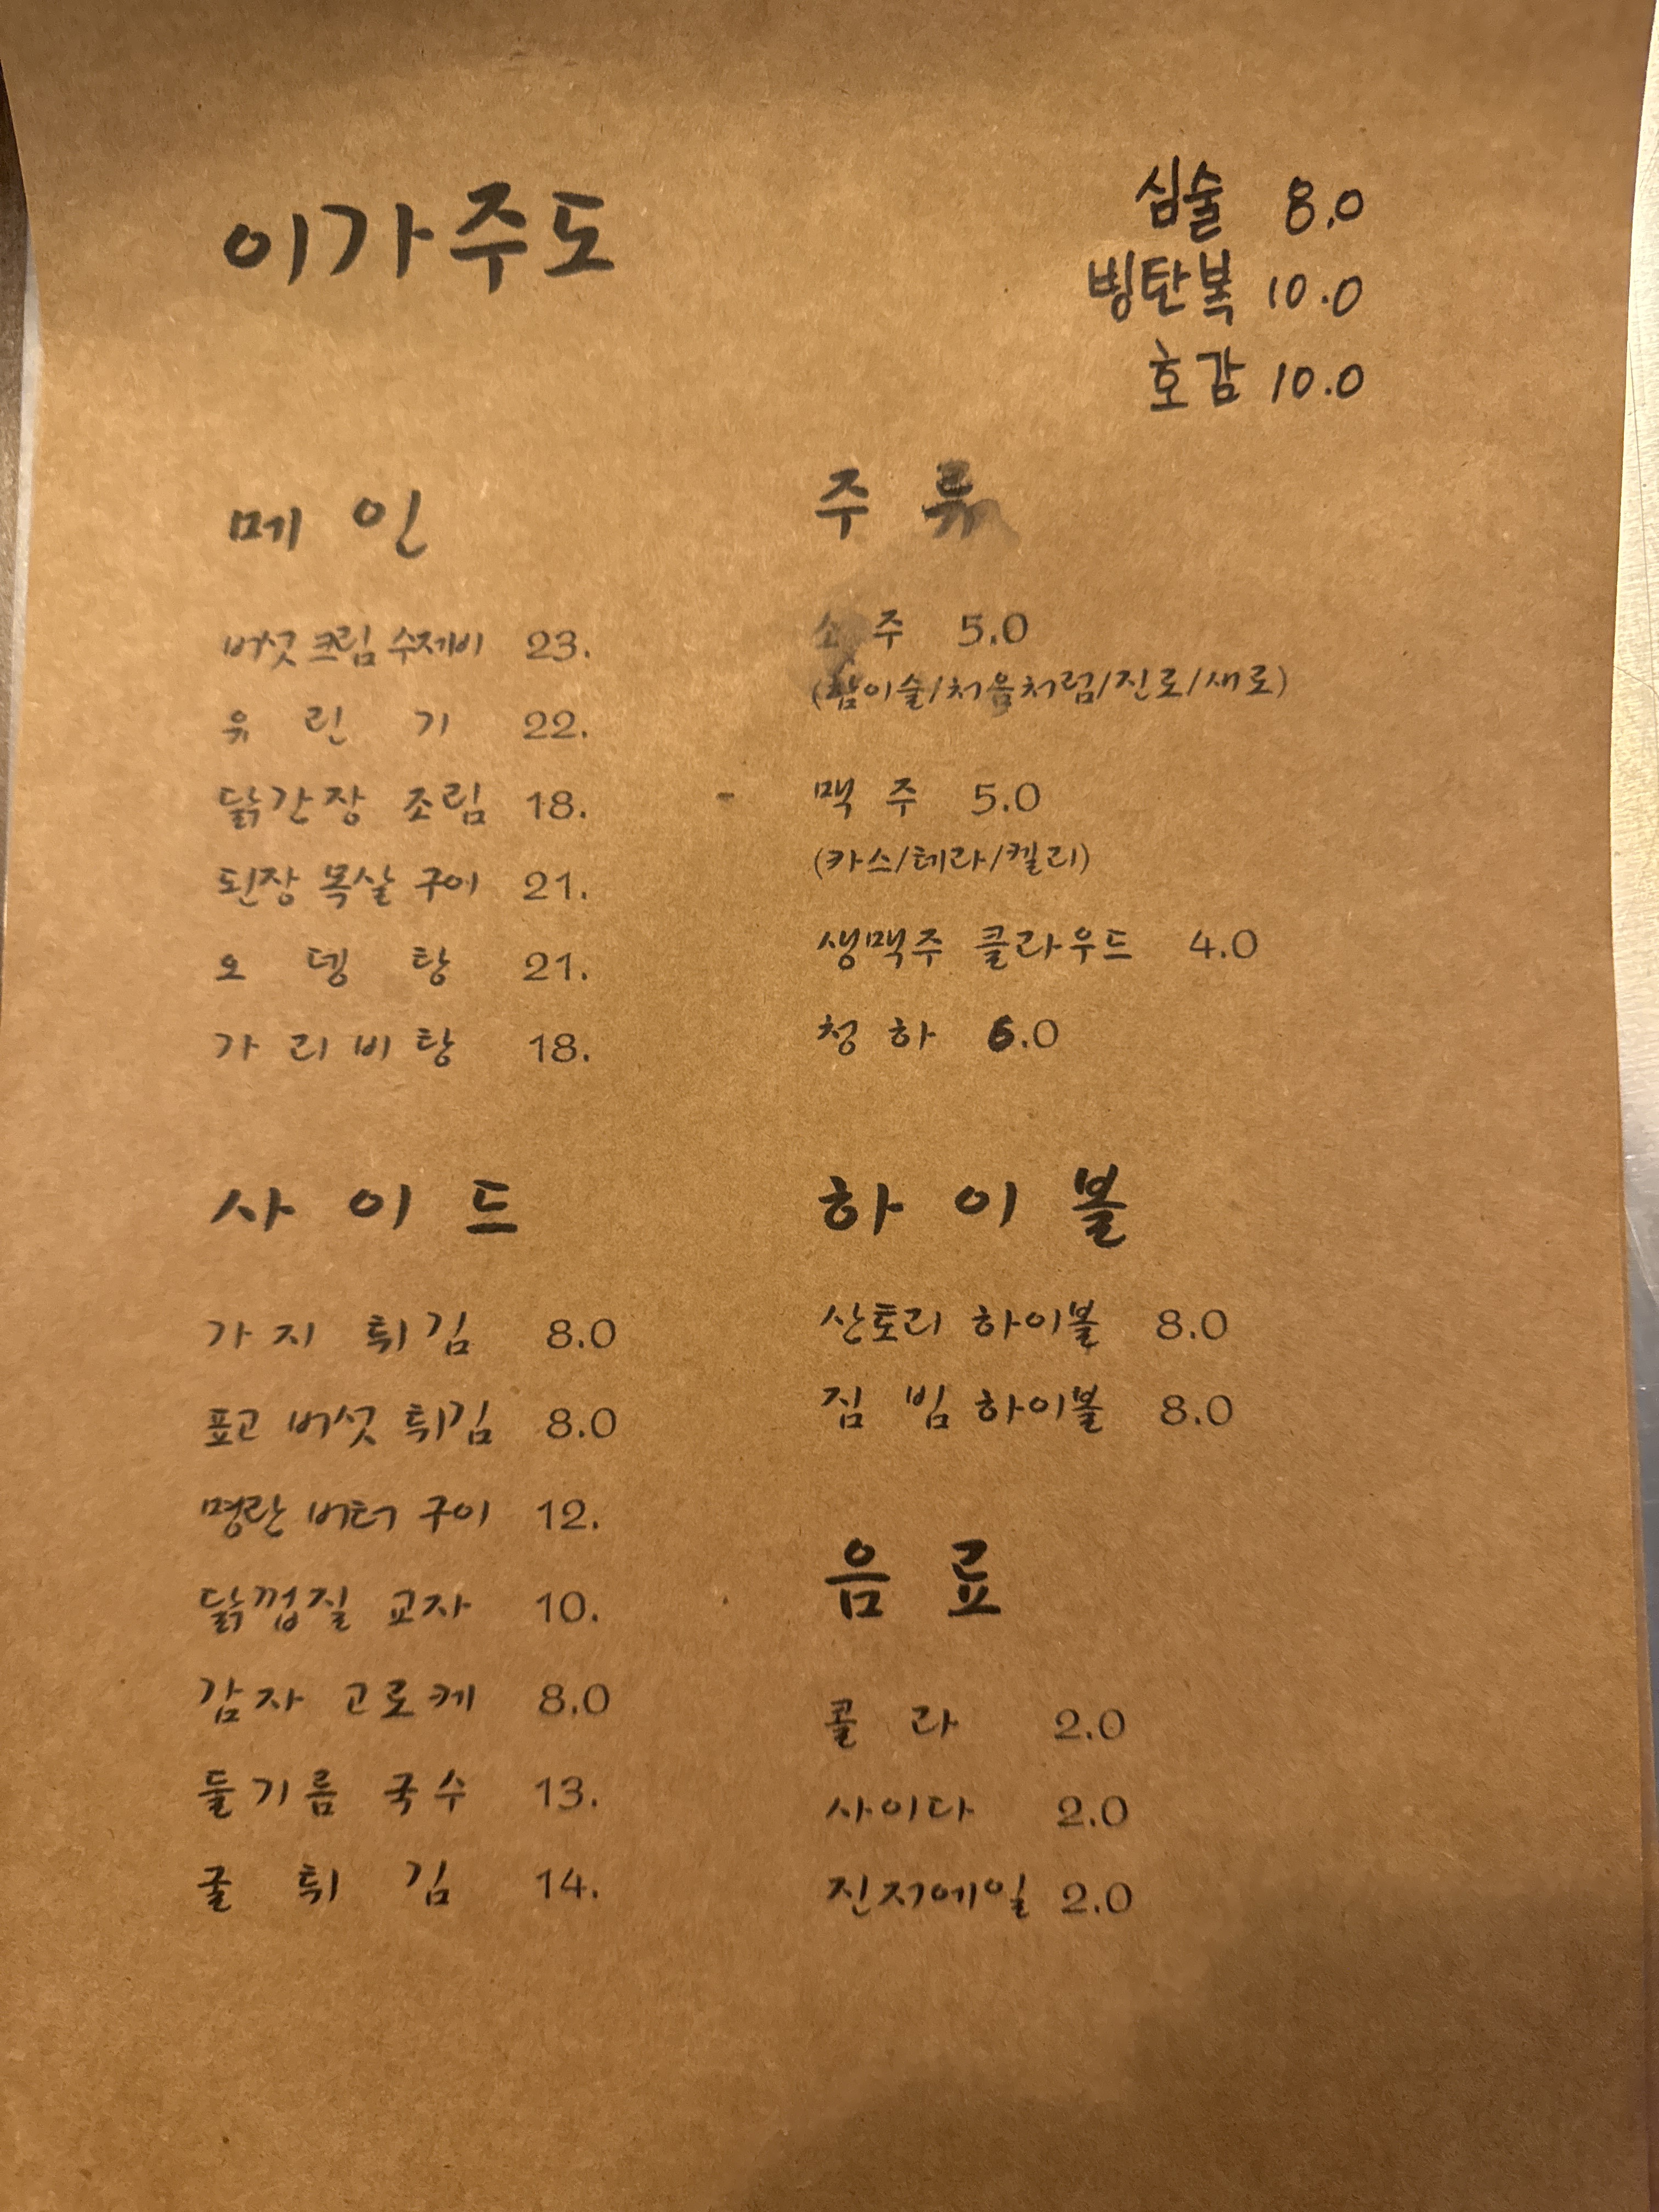 이가주도
심술 8.0
빙탄복 10.0
호감 10.0
메인
버섯크림수제비 23.
유린기 22.
닭간장 조림 18.
된장 목살 구이 21.
오뎅탕 21.
가리비탕 18.
사이드
가지 튀김 8.0
표고 버섯 튀김 8.0
명란 버터 구이 12.
닭껍질 교자 10.
감자 고로케 8.0
들기름 국수 13.
굴튀김 14.
주류
소주 5.0
(참이슬/처음처럼/진로/새로)
맥주 5.0
(카스/테라/켈리)
생맥주 클라우드 4.0
청하 6.0
하이볼
산토리 하이볼 8.0
짐빔 하이볼 8.0
음료
콜라 2.0
사이다 2.0
진저에일 2.0